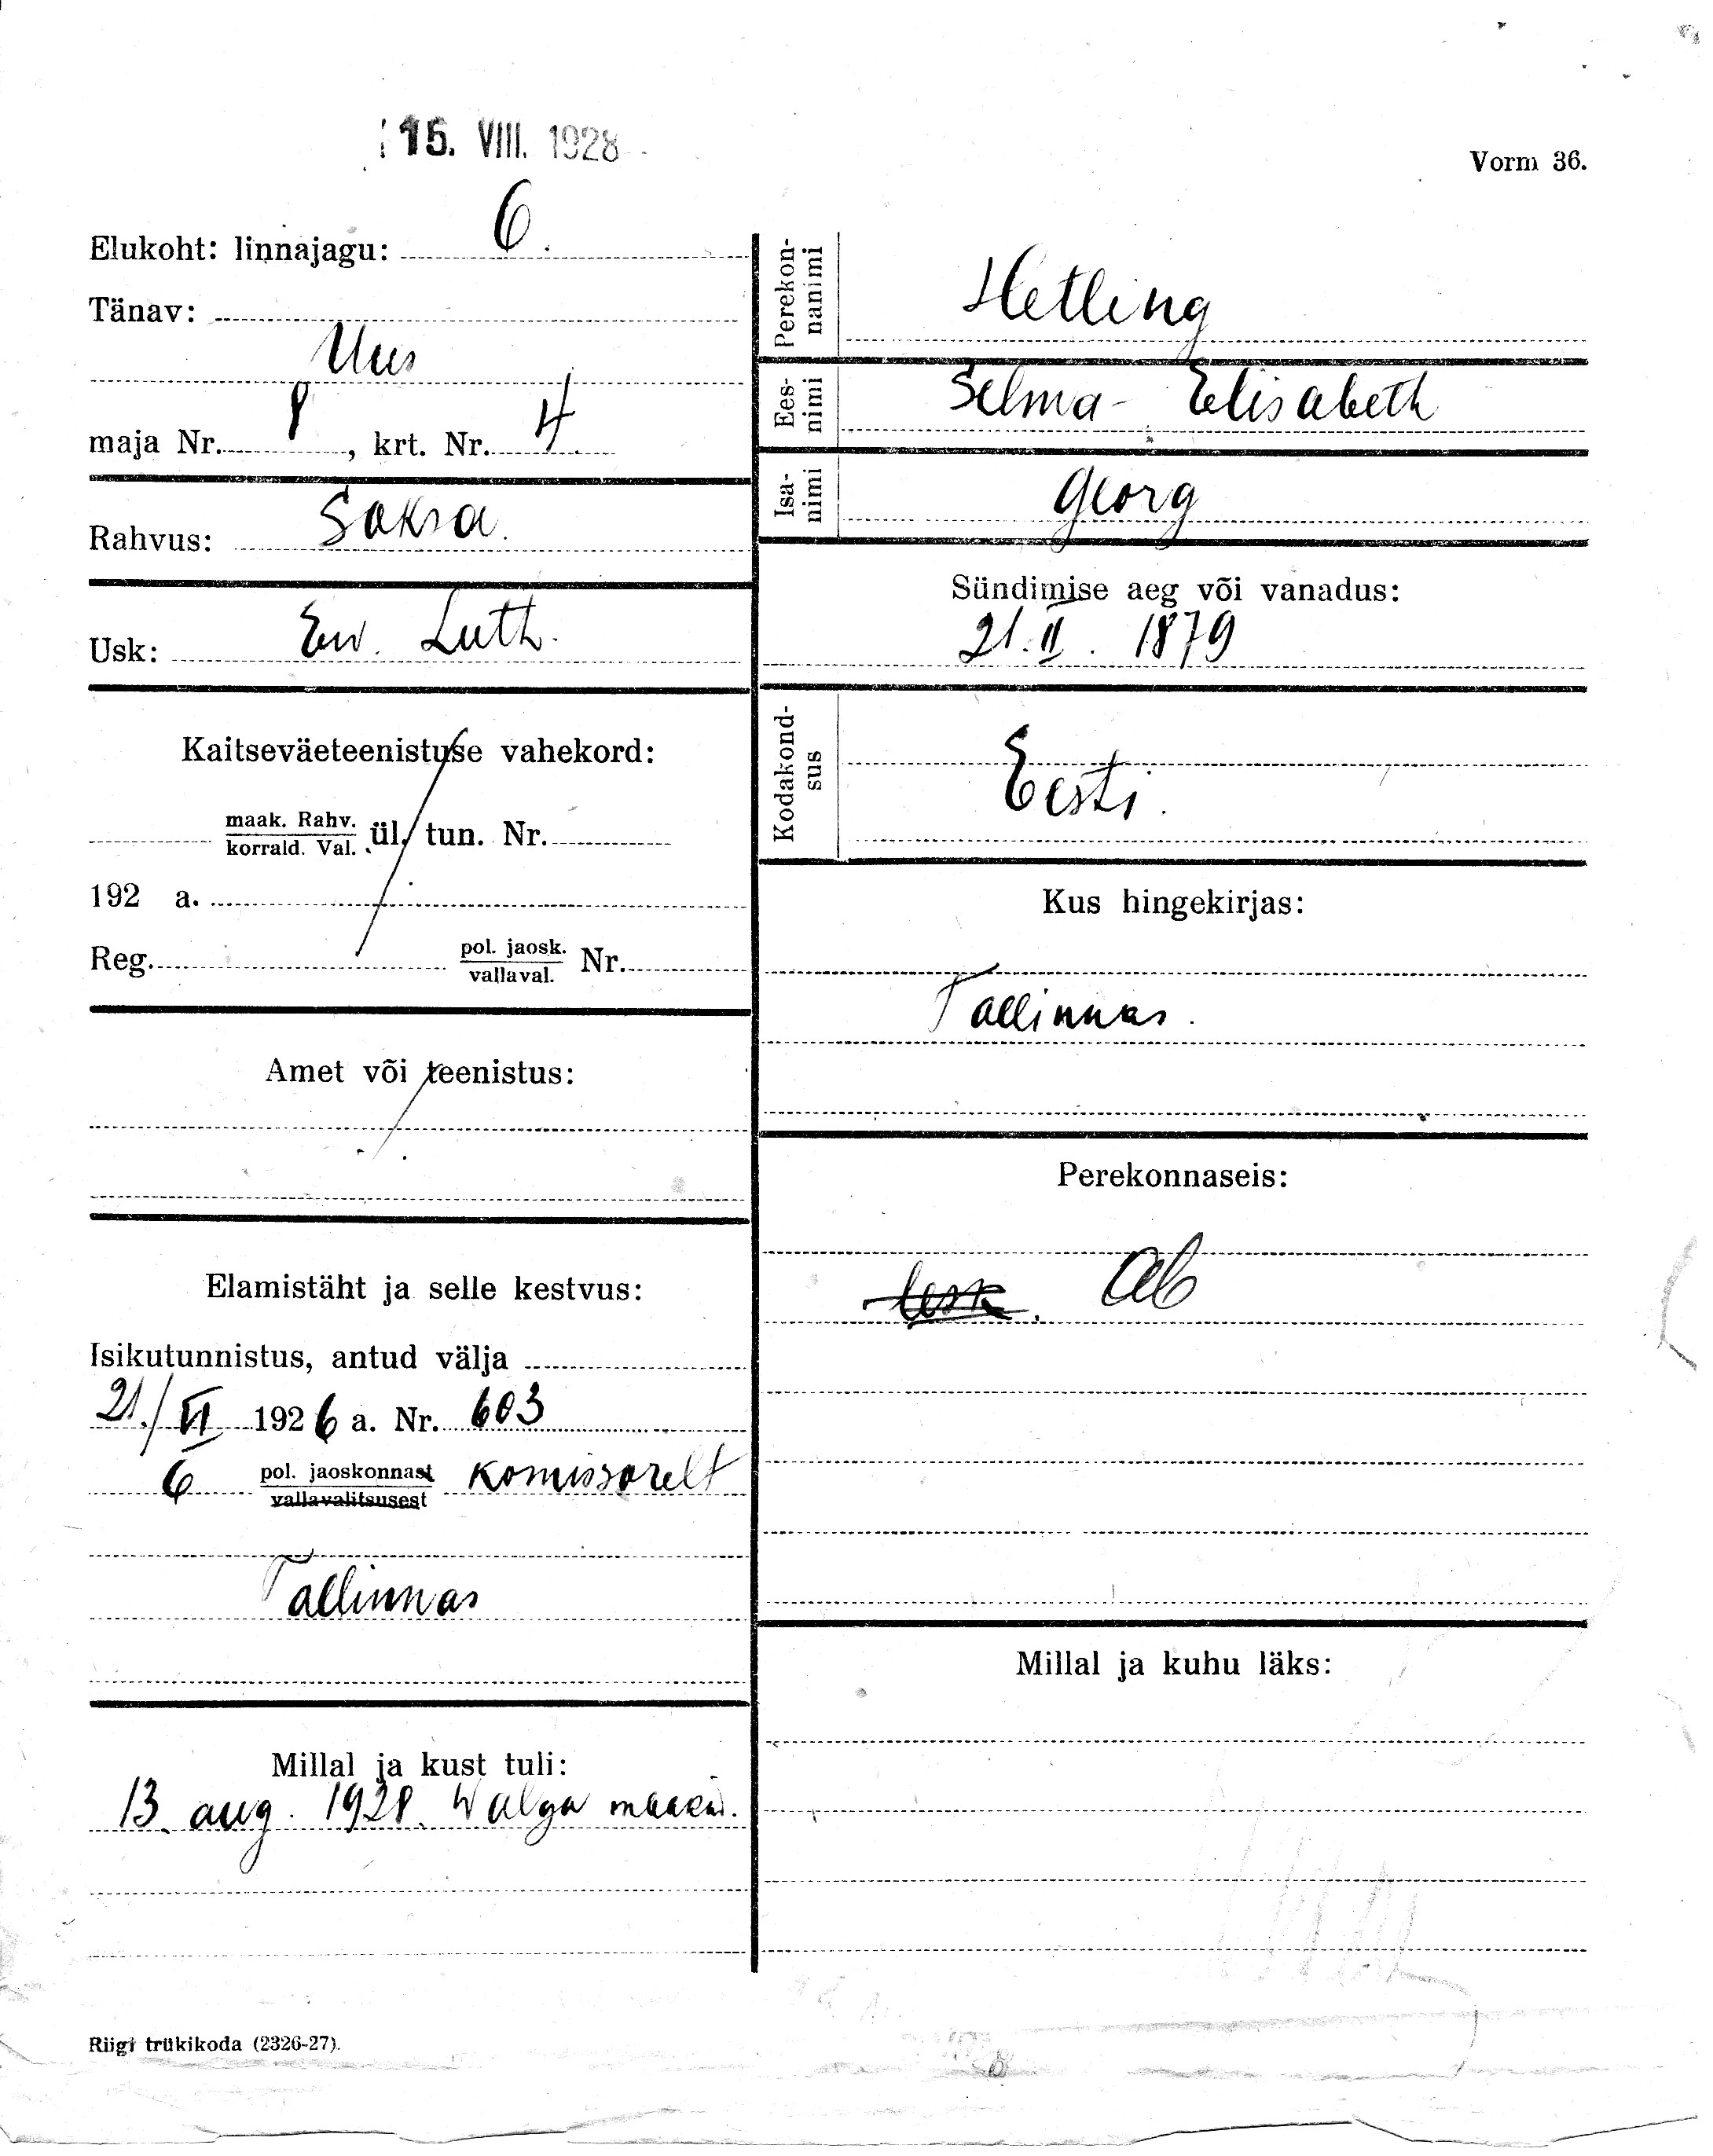 15. VIII. 1928
Vorm 36.
Elukoht: linnajagu: 6.
Tänav:
Uus
maja Nr. 8, krt. Nr. 4
Rahvus: Saksa.
Usk: Ew. Luth.
Kaitseväeteenistuse vahekord:
maak. Rahv.
korrald. Val. ül. tun. Nr.
192 a.
Reg. pol. jaosk. Nr.
vallaval.
Amet või teenistus:
Elamistäht ja selle kestvus:
Isikutunnistus, antud välja
21./VI 1926 a. Nr. 603
6 pol. jaoskonnast komissarelt
vallavalitsusest
Tallinnas
Millal ja kust tuli:
13. aug. 1928. Walga
Riigi trükikoda (2326-27).
Perekon-
nanimi
Hetling
Ees-
nimi
Selma-Elisabeth
Isa-
nimi
Georg
Sündimise aeg või vanadus:
21. II. 1879
Kodakond-
sus
Eesti.
Kus hingekirjas:
Tallinnas.
Perekonnaseis:
lesk. ab
Millal ja kuhu läks: